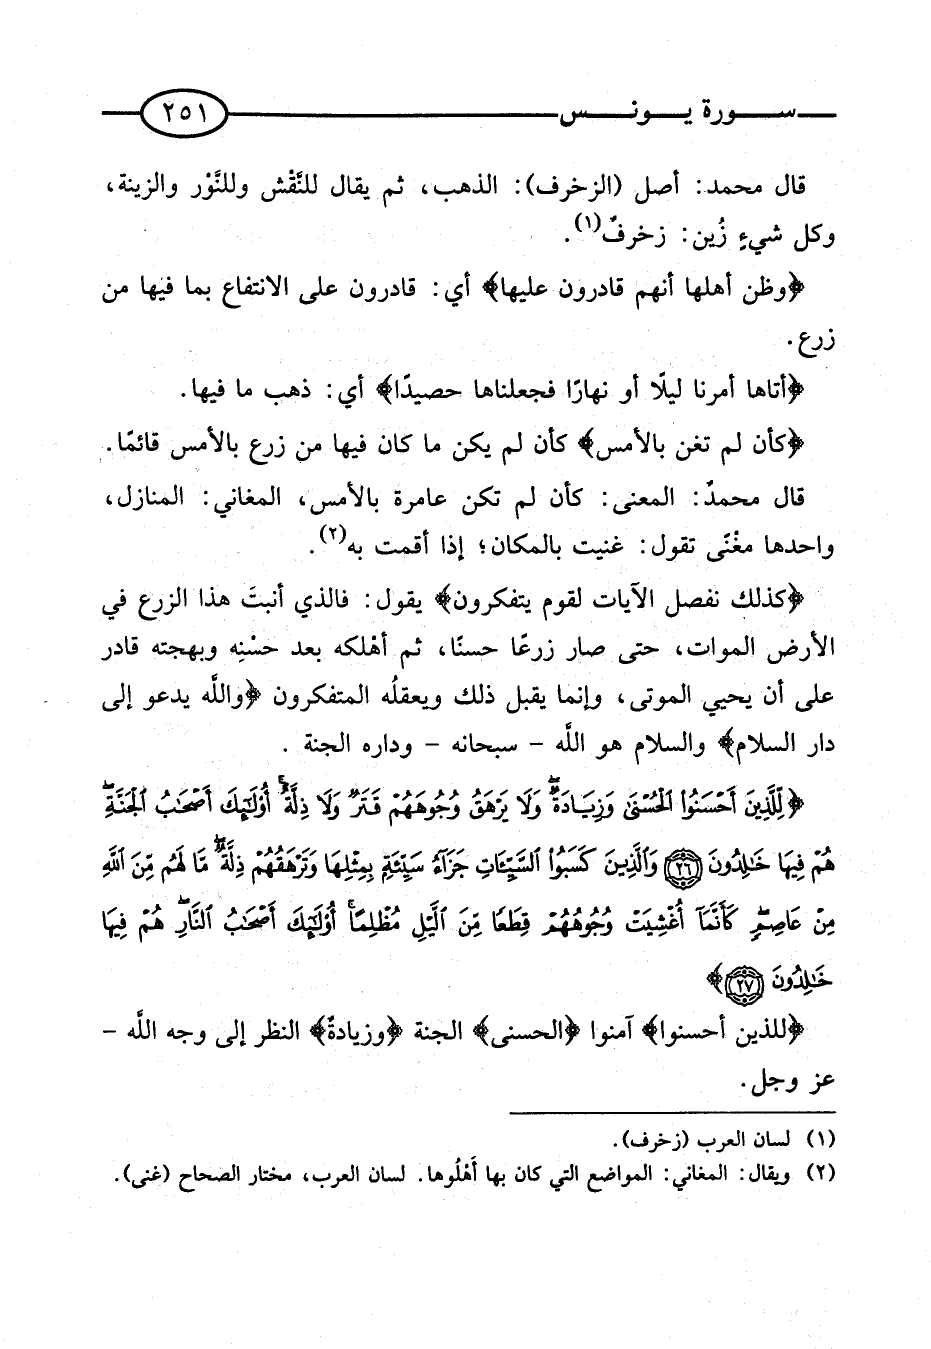 سورة يونس ٢٥١
قال محمد: أصل (الزخرف): الذهب، ثم يقال للنَّقْش وللنَّوْر والزينة،
وكل شيءٍ زُين: زخرفٌ(١).
﴿وظن أهلها أنهم قادرون عليها﴾ أي: قادرون على الانتفاع بما فيها من
زرع.
﴿أتاها أمرنا ليلًا أو نهارًا فجعلناها حصيدًا﴾ أي: ذهب ما فيها.
﴿كأن لم تغن بالأمس﴾ كأن لم يكن ما كان فيها من زرع بالأمس قائمًا.
قال محمدٌ: المعنى: كأن لم تكن عامرة بالأمس، المغاني: المنازل،
واحدها مغْنًى تقول: غنيت بالمكان؛ إذا أقمت به(٢).
﴿كذلك نفصل الآيات لقوم يتفكرون﴾ يقول: فالذي أنبتَ هذا الزرع في
الأرض الموات، حتى صار زرعًا حسنًا، ثم أهْلكه بعد حسْنِه وبهجته قادر
على أن يحيي الموتى، وإنما يقبل ذلك ويعقلُه المتفكرون ﴿واللَّه يدعو إلى
دار السلام﴾ والسلام هو اللَّه - سبحانه - وداره الجنة .
﴿لِّلَّذِينَ أَحۡسَنُواْ ٱلۡحُسۡنَىٰ وَزِيَادَةٞۖ وَلَا يَرۡهَقُ وُجُوهَهُمۡ قَتَرٞ وَلَا ذِلَّةٌۚ أُوْلَٰٓئِكَ أَصۡحَٰبُ ٱلۡجَنَّةِۖ
هُمۡ فِيهَا خَٰلِدُونَ ٢٦ وَٱلَّذِينَ كَسَبُواْ ٱلسَّيِّـَٔاتِ جَزَآءُ سَيِّئَةِۭ بِمِثۡلِهَا وَتَرۡهَقُهُمۡ ذِلَّةٞۖ مَّا لَهُم مِّنَ ٱللَّهِ
مِنۡ عَاصِمٖۖ كَأَنَّمَآ أُغۡشِيَتۡ وُجُوهُهُمۡ قِطَعٗا مِّنَ ٱلَّيۡلِ مُظۡلِمًاۚ أُوْلَٰٓئِكَ أَصۡحَٰبُ ٱلنَّارِۖ هُمۡ فِيهَا
خَٰلِدُونَ ٢٧﴾
﴿للذين أحسنوا﴾ آمنوا ﴿الحسنى﴾ الجنة ﴿وزيادةٌ﴾ النظر إلى وجه اللَّه -
عز وجل.
(١) لسان العرب (زخرف).
(٢) ويقال: المغاني: المواضع التي كان بها أَهْلُوها. لسان العرب، مختار الصحاح (غنى).